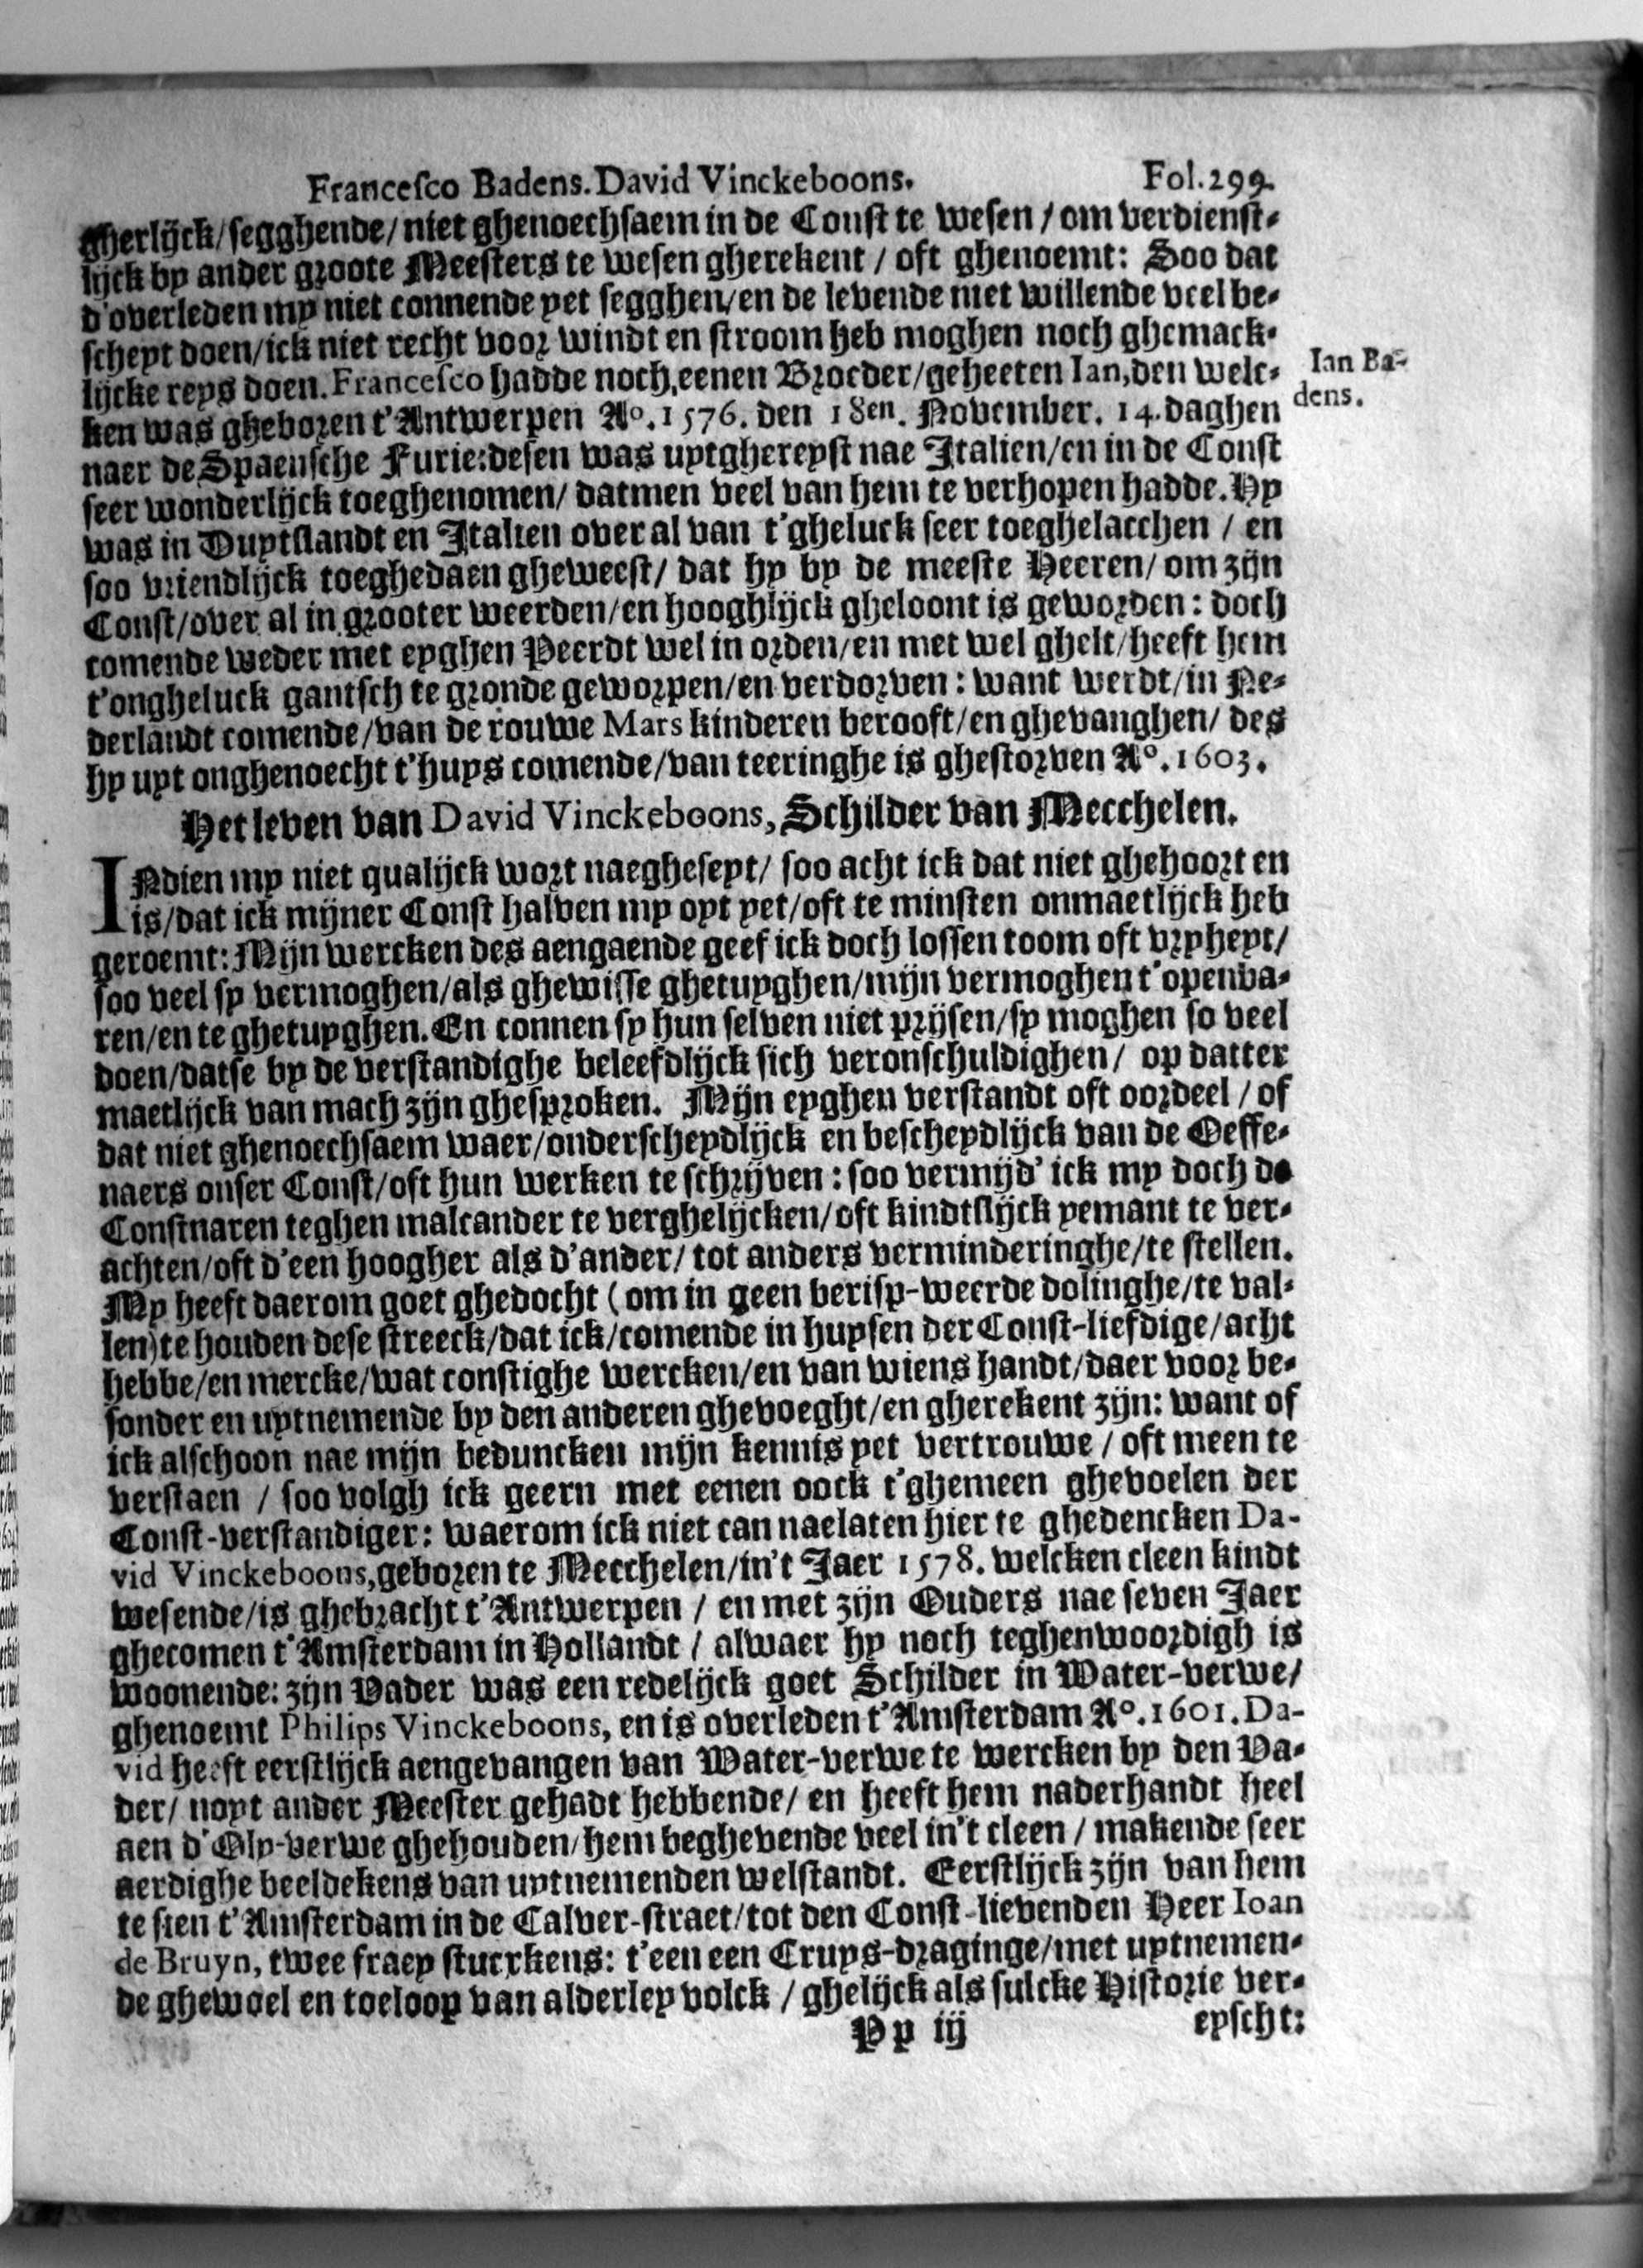 Francesco Badens. David Vinckeboons. Fol. 299.
gherlijck/segghende/niet ghenoechsaem in de Const te wesen/om verdienst-
lijck by ander groote Meesters te wesen gherekent/oft ghenoemt: Soo dat
d'overleden my niet connende yet segghen/en de levende niet willende veel be-
scheyt doen/ick niet recht voor windt en stroom heb moghen noch ghemack-
lijcke reys doen. Francesco hadde noch, eenen Broeder/geheeten Ian, den welc-
ken was gheboren t'Antwerpen Aº. 1576. den 18en. November. 14. daghen
Ian Ba-
dens.
naer de Spaensche Furie: desen was uytghereyst nae Italien/en in de Const
seer wonderlijck toeghenomen/datmen veel van hem te verhopen hadde. Hy
was in Duytslandt en Italien over al van t'gheluck seer toeghelacchen/en
soo vriendlijck toeghedaen gheweest/dat hy by de meeste Heeren/om zijn
Const/over al in grooter weerden/en hooghlijck gheloont is geworden: doch
comende weder met eyghen Peerdt wel in orden/en met wel ghelt/heeft hem
t'ongheluck gantsch te gronde geworpen/en verdorven: want werdt/in Ne-
derlandt comende/van de rouwe Mars kinderen berooft/en ghevanghen/des
hy uyt onghenoecht t'huys comende/van teeringhe is ghestorven Aº. 1603.
Het leven van David Vinckeboons, Schilder van Mecchelen.
INdien my niet qualijck wort naegheseyt/soo acht ick dat niet ghehoort en
is/dat ick mijner Const halven my oyt yet/oft te minsten onmaetlijck heb
geroemt: Mijn wercken des aengaende geef ick doch lossen toom oft vryheyt/
soo veel sy vermoghen/als ghewisse ghetuyghen/mijn vermoghen t'openba-
ren/en te ghetuyghen. En connen sy hun selven niet prijsen/sy moghen so veel
doen/datse by de verstandighe beleefdlijck sich veronschuldighen/op datter
maetlijck van mach zijn ghesproken. Mijn eyghen verstandt oft oordeel/of
dat niet ghenoechsaem waer/onderscheydlijck en bescheydlijck van de Oeffe-
naers onser Const/oft hun werken te schrijven: soo vermijd' ick my doch de
Constnaren teghen malcander te verghelijcken/oft kindtslijck yemant te ver-
achten/oft d'een hoogher als d'ander/tot anders verminderinghe/te stellen.
My heeft daerom goet ghedocht (om in geen berisp-weerde dolinghe/te val-
len) te houden dese streeck/dat ick/comende in huysen der Const-liefdige/acht
hebbe/en mercke/wat constighe wercken/en van wiens handt/daer voor be-
sonder en uytnemende by den anderen ghevoeght/en gherekent zijn: want of
ick alschoon nae mijn beduncken mijn kennis yet vertrouwe/oft meen te
verstaen/soo volgh ick geern met eenen oock t'ghemeen ghevoelen der
Const-verstandiger: waerom ick niet can naelaten hier te ghedencken Da-
vid Vinckeboons, geboren te Mecchelen/in't Jaer 1578. welcken cleen kindt
wesende/is ghebracht t'Antwerpen/en met zijn Ouders nae seven Jaer
ghecomen t'Amsterdam in Hollandt/alwaer hy noch teghenwoordigh is
woonende: zijn Vader was een redelijck goet Schilder in Water-verwe/
ghenoemt Philips Vinckeboons, en is overleden t'Amsterdam Aº. 1601. Da-
vid heeft eerstlijck aengevangen van Water-verwe te wercken by den Va-
der/noyt ander Meester gehadt hebbende/en heeft hem naderhandt heel
aen d'Oly-verwe ghehouden/hem beghevende veel in't cleen/makende seer
aerdighe beeldekens van uytnemenden welstandt. Eerstlijck zijn van hem
te sien t'Amsterdam in de Calver-straet/tot den Const-lievenden Heer Ioan
de Bruyn, twee fraey stucxkens: t'een een Cruys-draginge/met uytnemen-
de ghewoel en toeloop van alderley volck/ghelijck als sulcke Historie ver-
Pp iij eyscht: